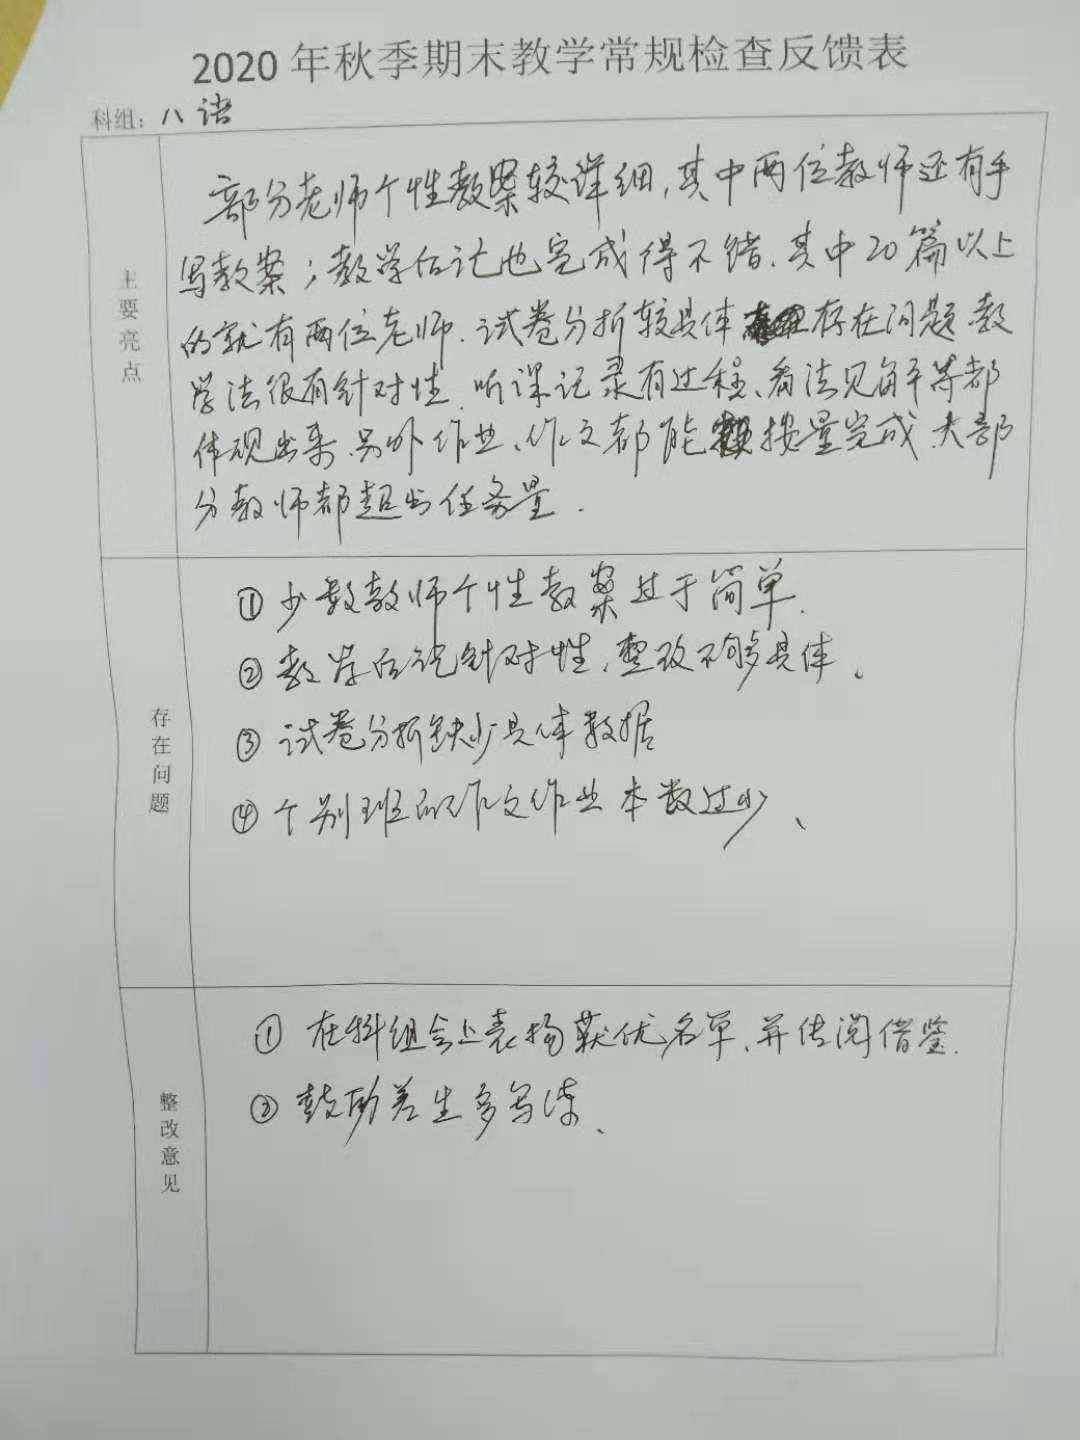 2020年秋季期末教学常规检查反馈表
科组：八语
主要亮点
部分老师个性教案较详细,其中两位教师还有手
写教案；教学后记也完成得不错.其中20篇以上
的就有两位老师.试卷分析较具体 存在问题.教
学法很有针对性.听课记录有过程、看法见解等都
体现出来.另外作业、作文都能按量完成 大部
分教师都超出任务量.
存在问题
①少数教师个性教案过于简单.
②教学后记针对性,整改不够具体、
③试卷分析缺少具体数据
④个别班的作文作业本数过少、
整改意见
①在科组会上表扬获优名单、并传阅借鉴.
②鼓励差生多写读、